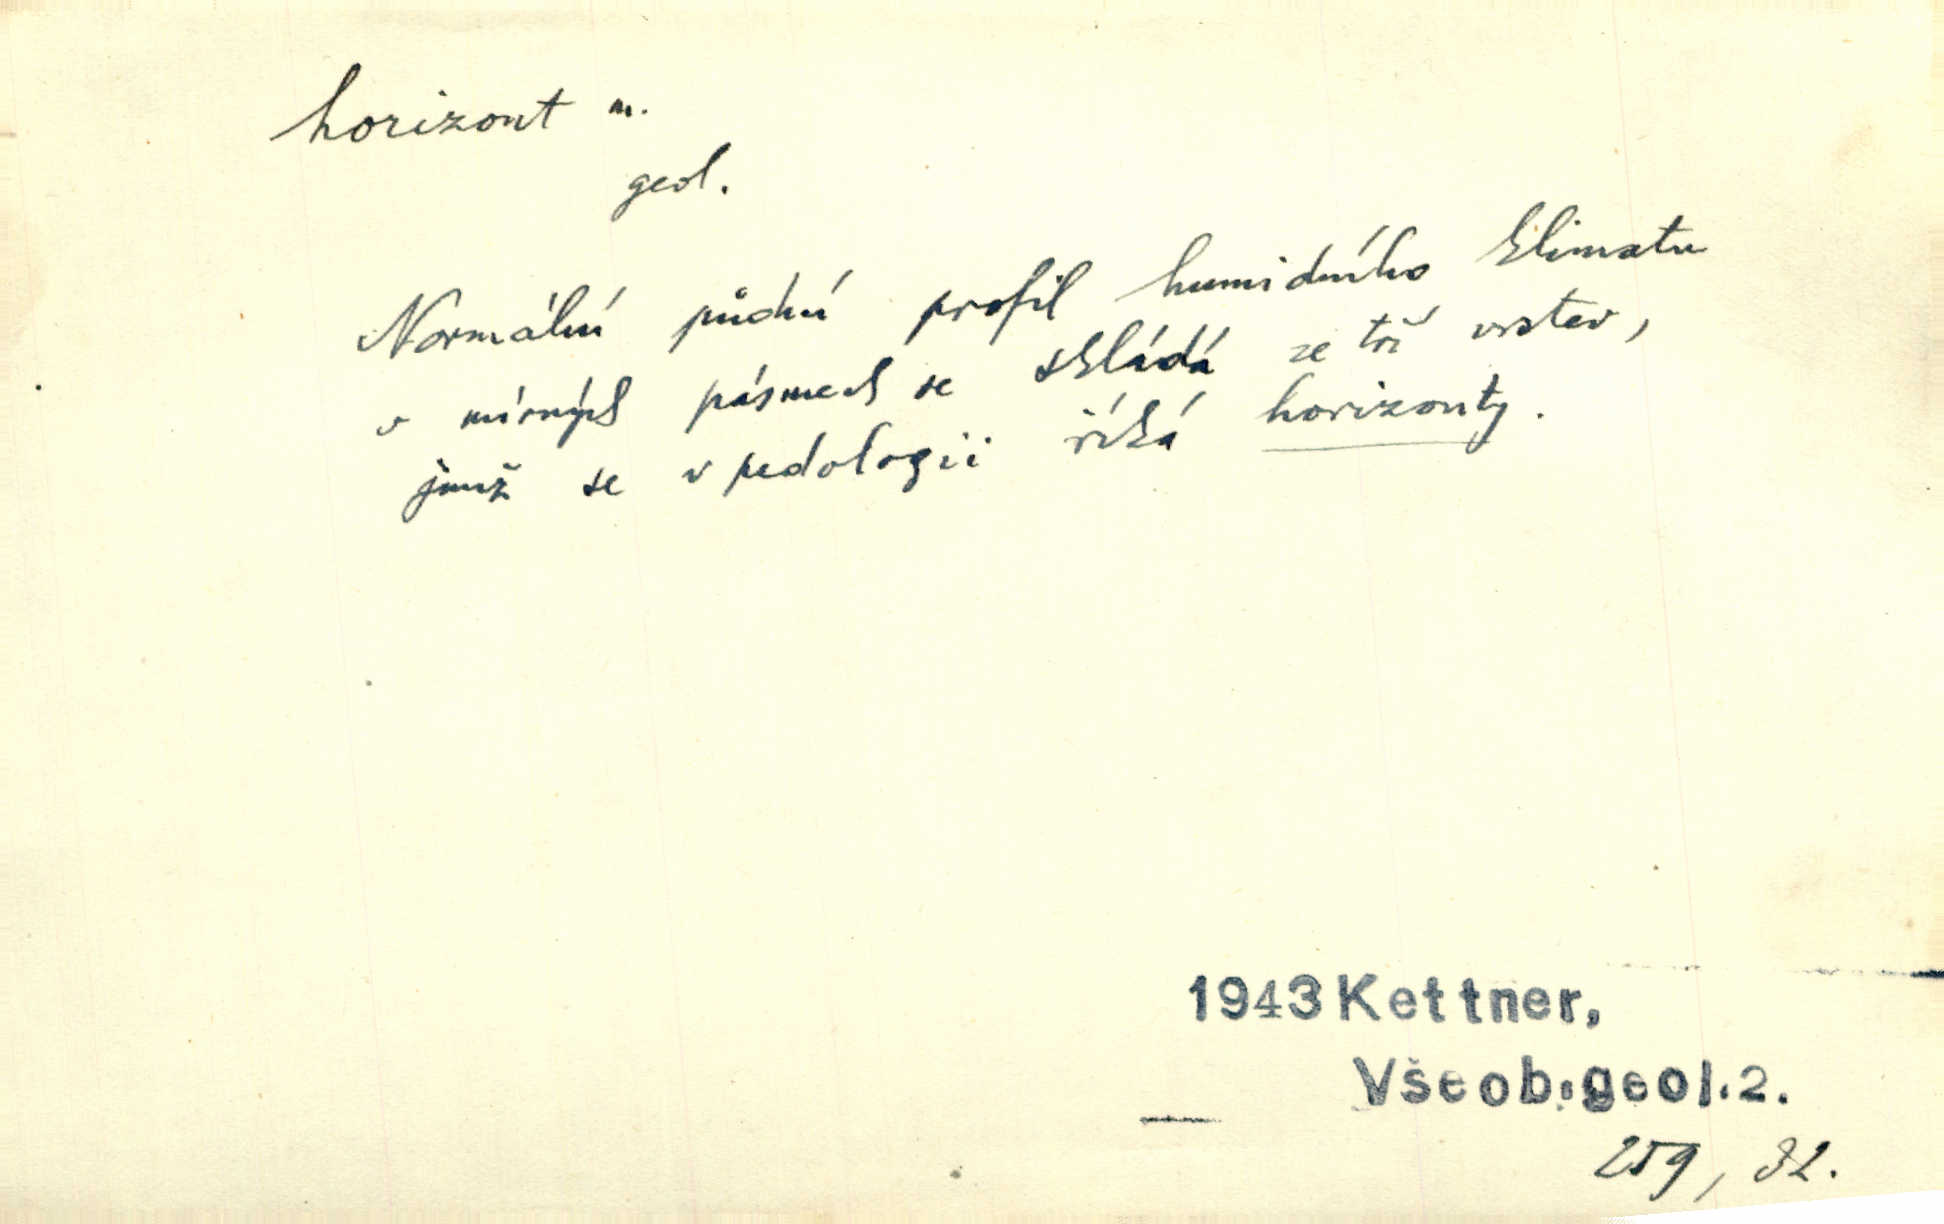 horizont m.
geol.
Normální půdní profil humidního klimatu
v mírných pásmech se skládá ze tří vrstev,
jimž se v pedologii říká horizonty.
1943 Kettner,
Všeob. geol. 2.
259, 32.